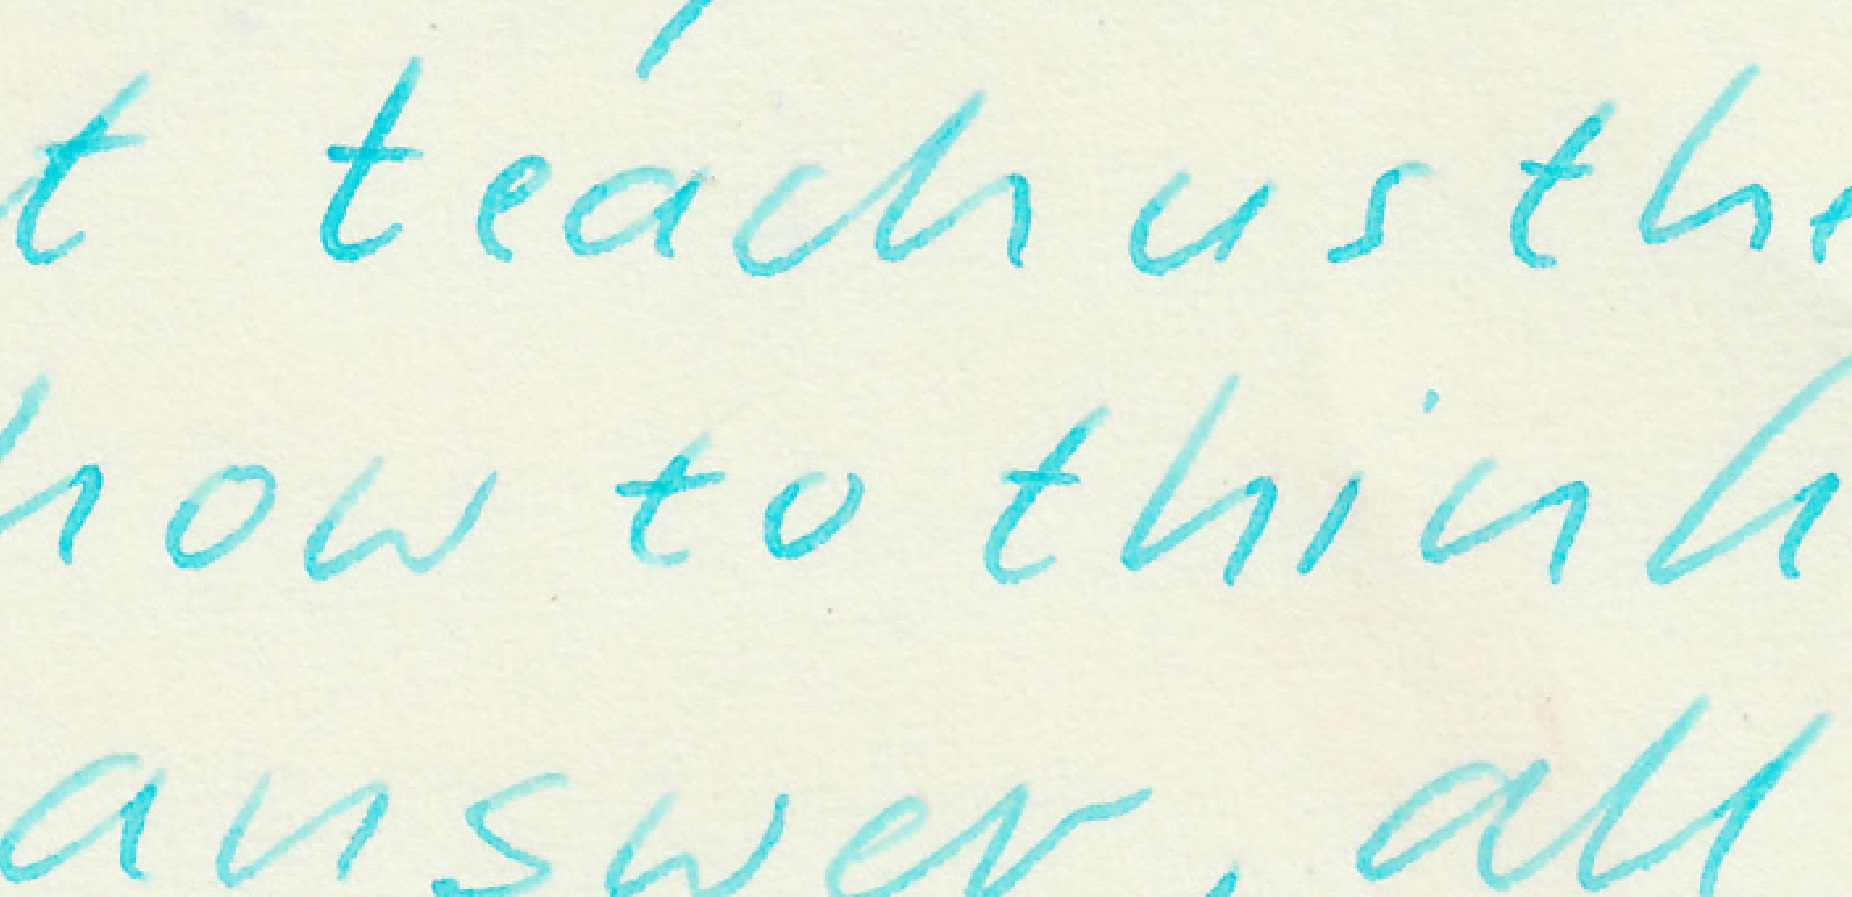 t teach us the
how to think
answer, all